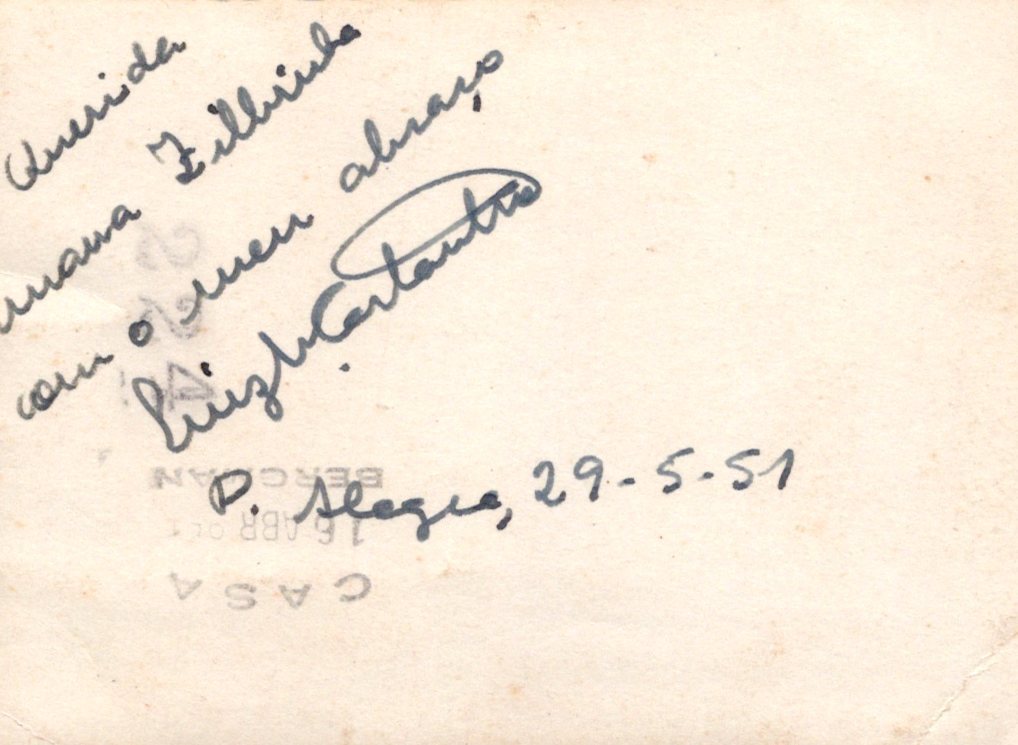 Querida
mana Zilbinha
com o meu abraço
Luiz
P. Alegre, 29-5-51
BERGMAN
16 ABR
CASA